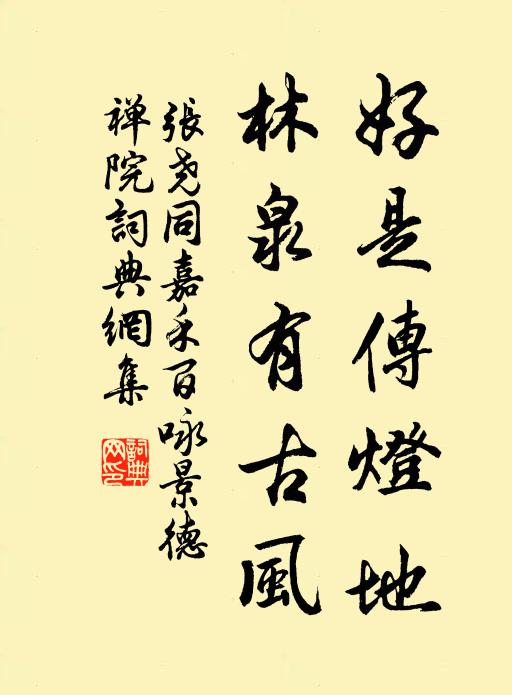 好是傳燈地
林泉有古風
張堯同嘉禾百咏景德
禅院詞典網集
詞典
网印